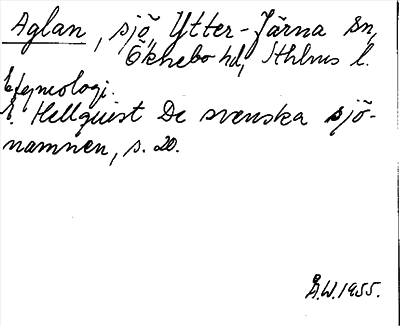 Aglan, sjö, Ytter-Järna sn,
Öknebo hd, Sthlms l.
Etymologi.
E. Hellquist De svenska sjö-
namnen, s. 20.
Å.W. 1955.